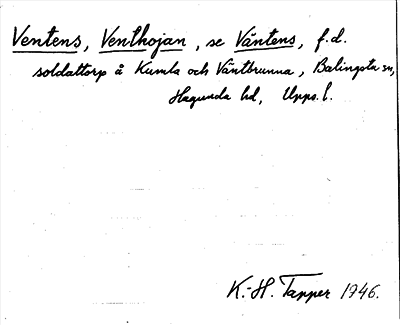 Ventens, Venthojan, se Väntens, f.d.
soldattorp å Kumla och Väntbrunna, Balingsta sn,
Hagunda hd, Upps. l.
K.-H. Tapper 1946.